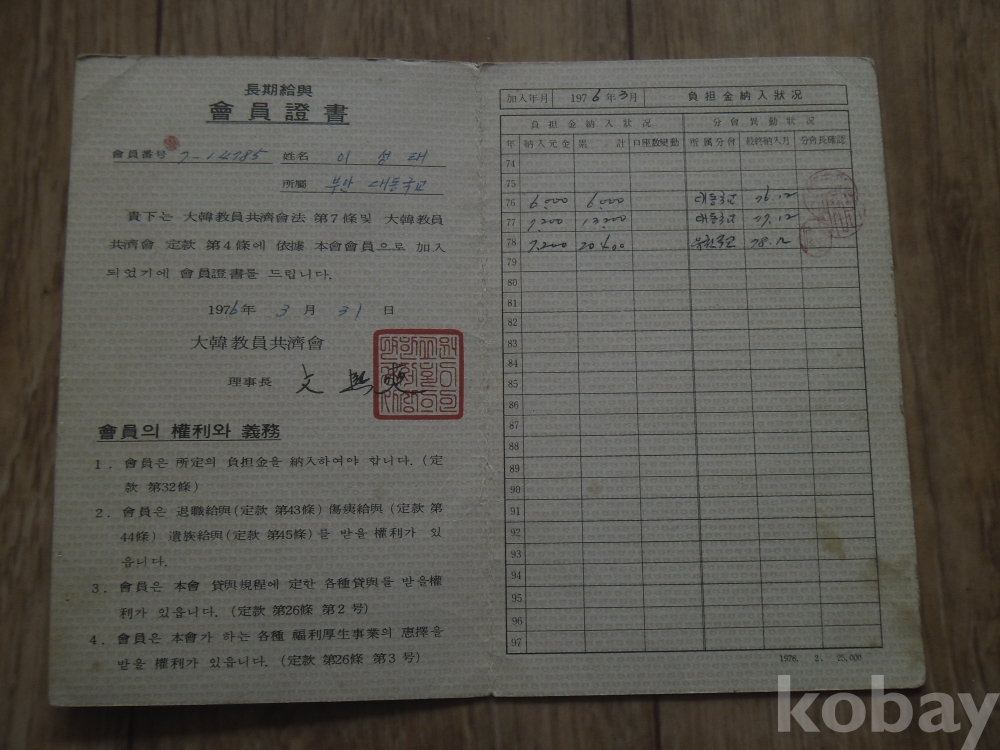 長期給與
會員證書
會員番号 7-14785 姓名 이성태
所屬 부안 대동국교
貴下는 大韓敎員共濟會法 第7條및 大韓敎員
共濟會 定款 第4條에 依據 本會會員으로 加入
되었기에 會員證書를 드립니다.
1976年 3 月 31 日
大韓敎員共濟會
理事長 文
會員의 權利와 義務
1. 會員은 所定의 負担金을 納入하여야 합니다. (定
款 第32條)
2. 會員은 退職給與(定款 第43條) 傷痍給與(定款 第
44條) 遺族給與(定款 第45條)를 받을 權利가 있
읍니다.
3. 會員은 本會 貸與規程에 定한 各種貸與를 받을權
利가 있읍니다. (定款 第26條 第2号)
4. 會員은 本會가 하는 各種 福利厚生事業의 惠擇을
받을 權利가 있읍니다. (定款 第26條 第3号)
加入年月 1976年3月 負担金納入狀况
負担金納入狀况 分會異動狀况
年 納入元金 累計 口座數變動 所屬分會 最終納入月 分會長確認
74
75
76 6,000 6,000 대동국교 76.12
77 7,200 13,200 대동국교 77.12
78 7,200 20,400 국교 78.12
79
80
81
82
83
84
85
86
87
88
89
90
91
92
93
94
95
96
97
1976. 2. 25,000
kobay